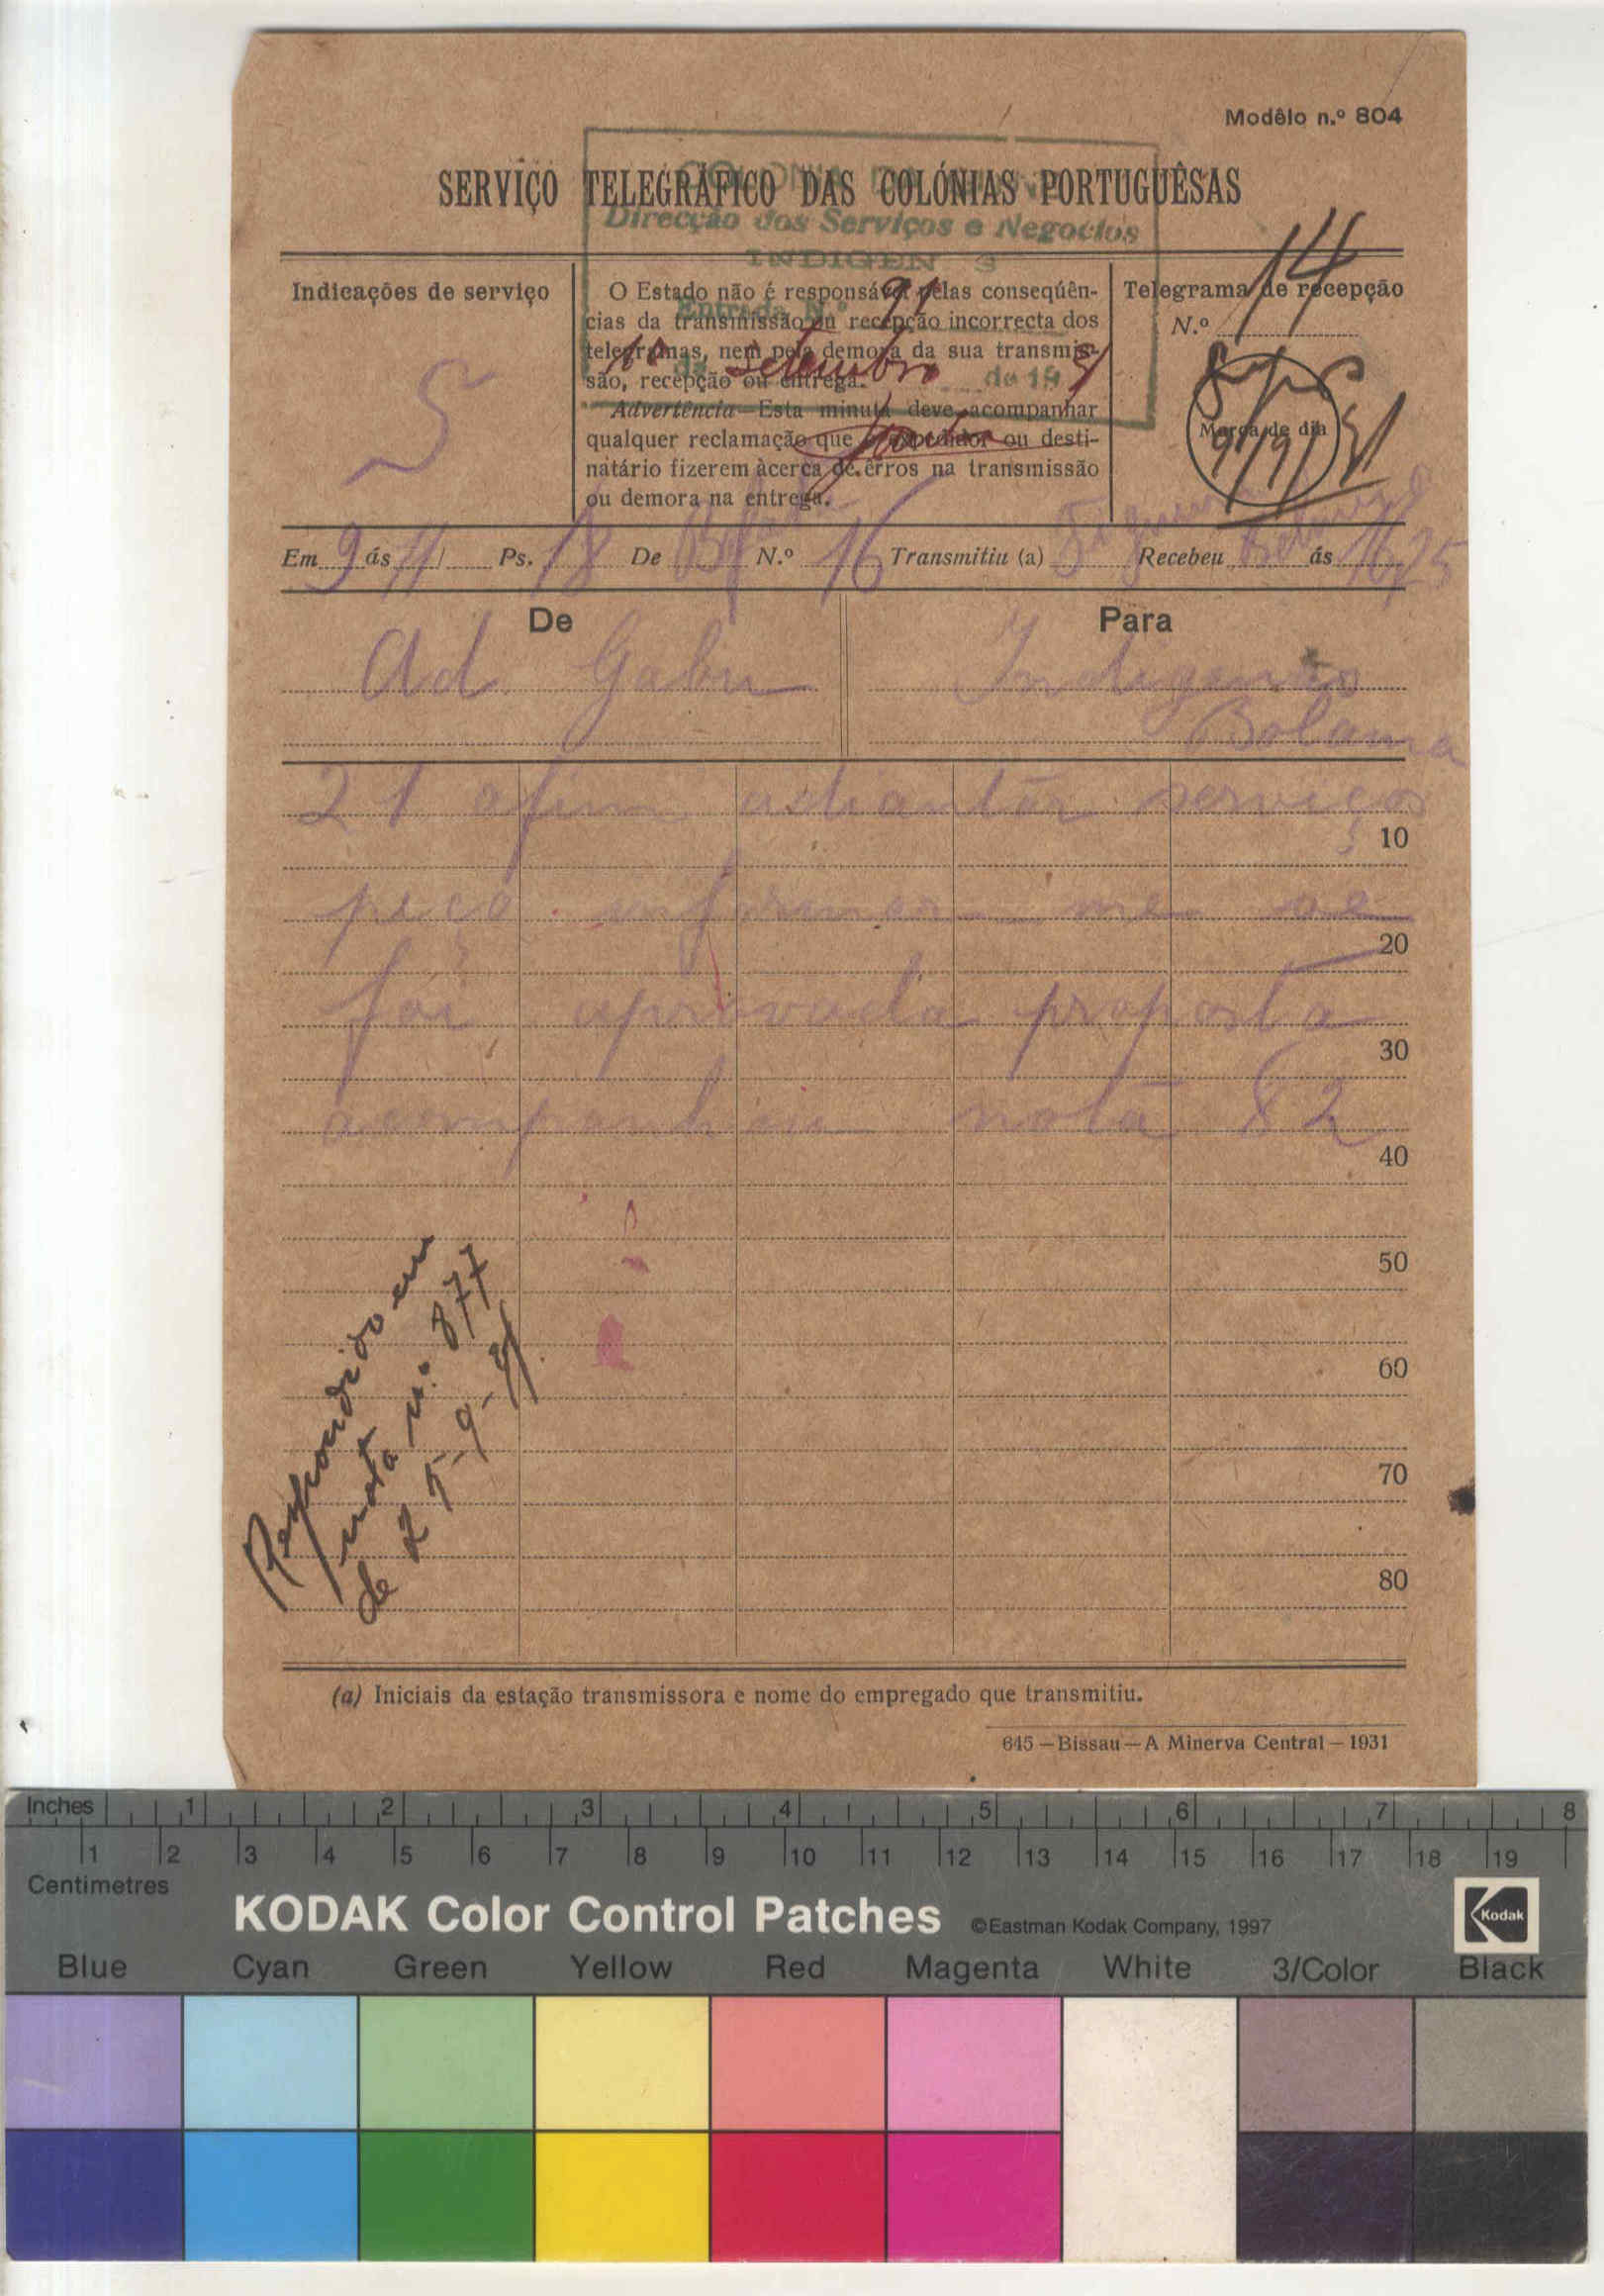 Modêlo n.º 804
SERVIÇO TELEGRÁFICO DAS COLÓNIAS PORTUGUÊSAS
Direcção dos Serviços e Negocios
Entrada N.º 91
10 de Setembro de 1931
Indicações de serviço
S
O Estado não é responsável pelas conseqüên-
cias da transmissão ou recepção incorrecta dos
telegramas, nem pela demora da sua transmis-
são, recepção ou entrega.
Advertência—Esta minuta deve acompanhar
qualquer reclamação que o expedidor ou desti-
natário fizerem àcerca de êrros na transmissão
ou demora na entrega.
Telegrama de recepção
N.º 14
Marca de dia
9/9/31
Em 9 ás 11 Ps. 18 De Bafatá N.º 16 Transmitiu (a) Recebeu ás 16,25
De
Para
Ad Gabu
Indigenas
Bolama
21 afim adiantar serviços
10
peço informar me se
20
foi aprovada proposta
30
acompanhou nota 82
40
50
60
70
80
Respondido em
nota n.º 877
de 25-9-31
(a) Iniciais da estação transmissora e nome do empregado que transmitiu.
645 — Bissau — A Minerva Central — 1931
Inches 1 2 3 4 5 6 7 8
1 2 3 4 5 6 7 8 9 10 11 12 13 14 15 16 17 18 19
Centimetres
KODAK Color Control Patches ©Eastman Kodak Company, 1997 Kodak
Blue Cyan Green Yellow Red Magenta White 3/Color Black